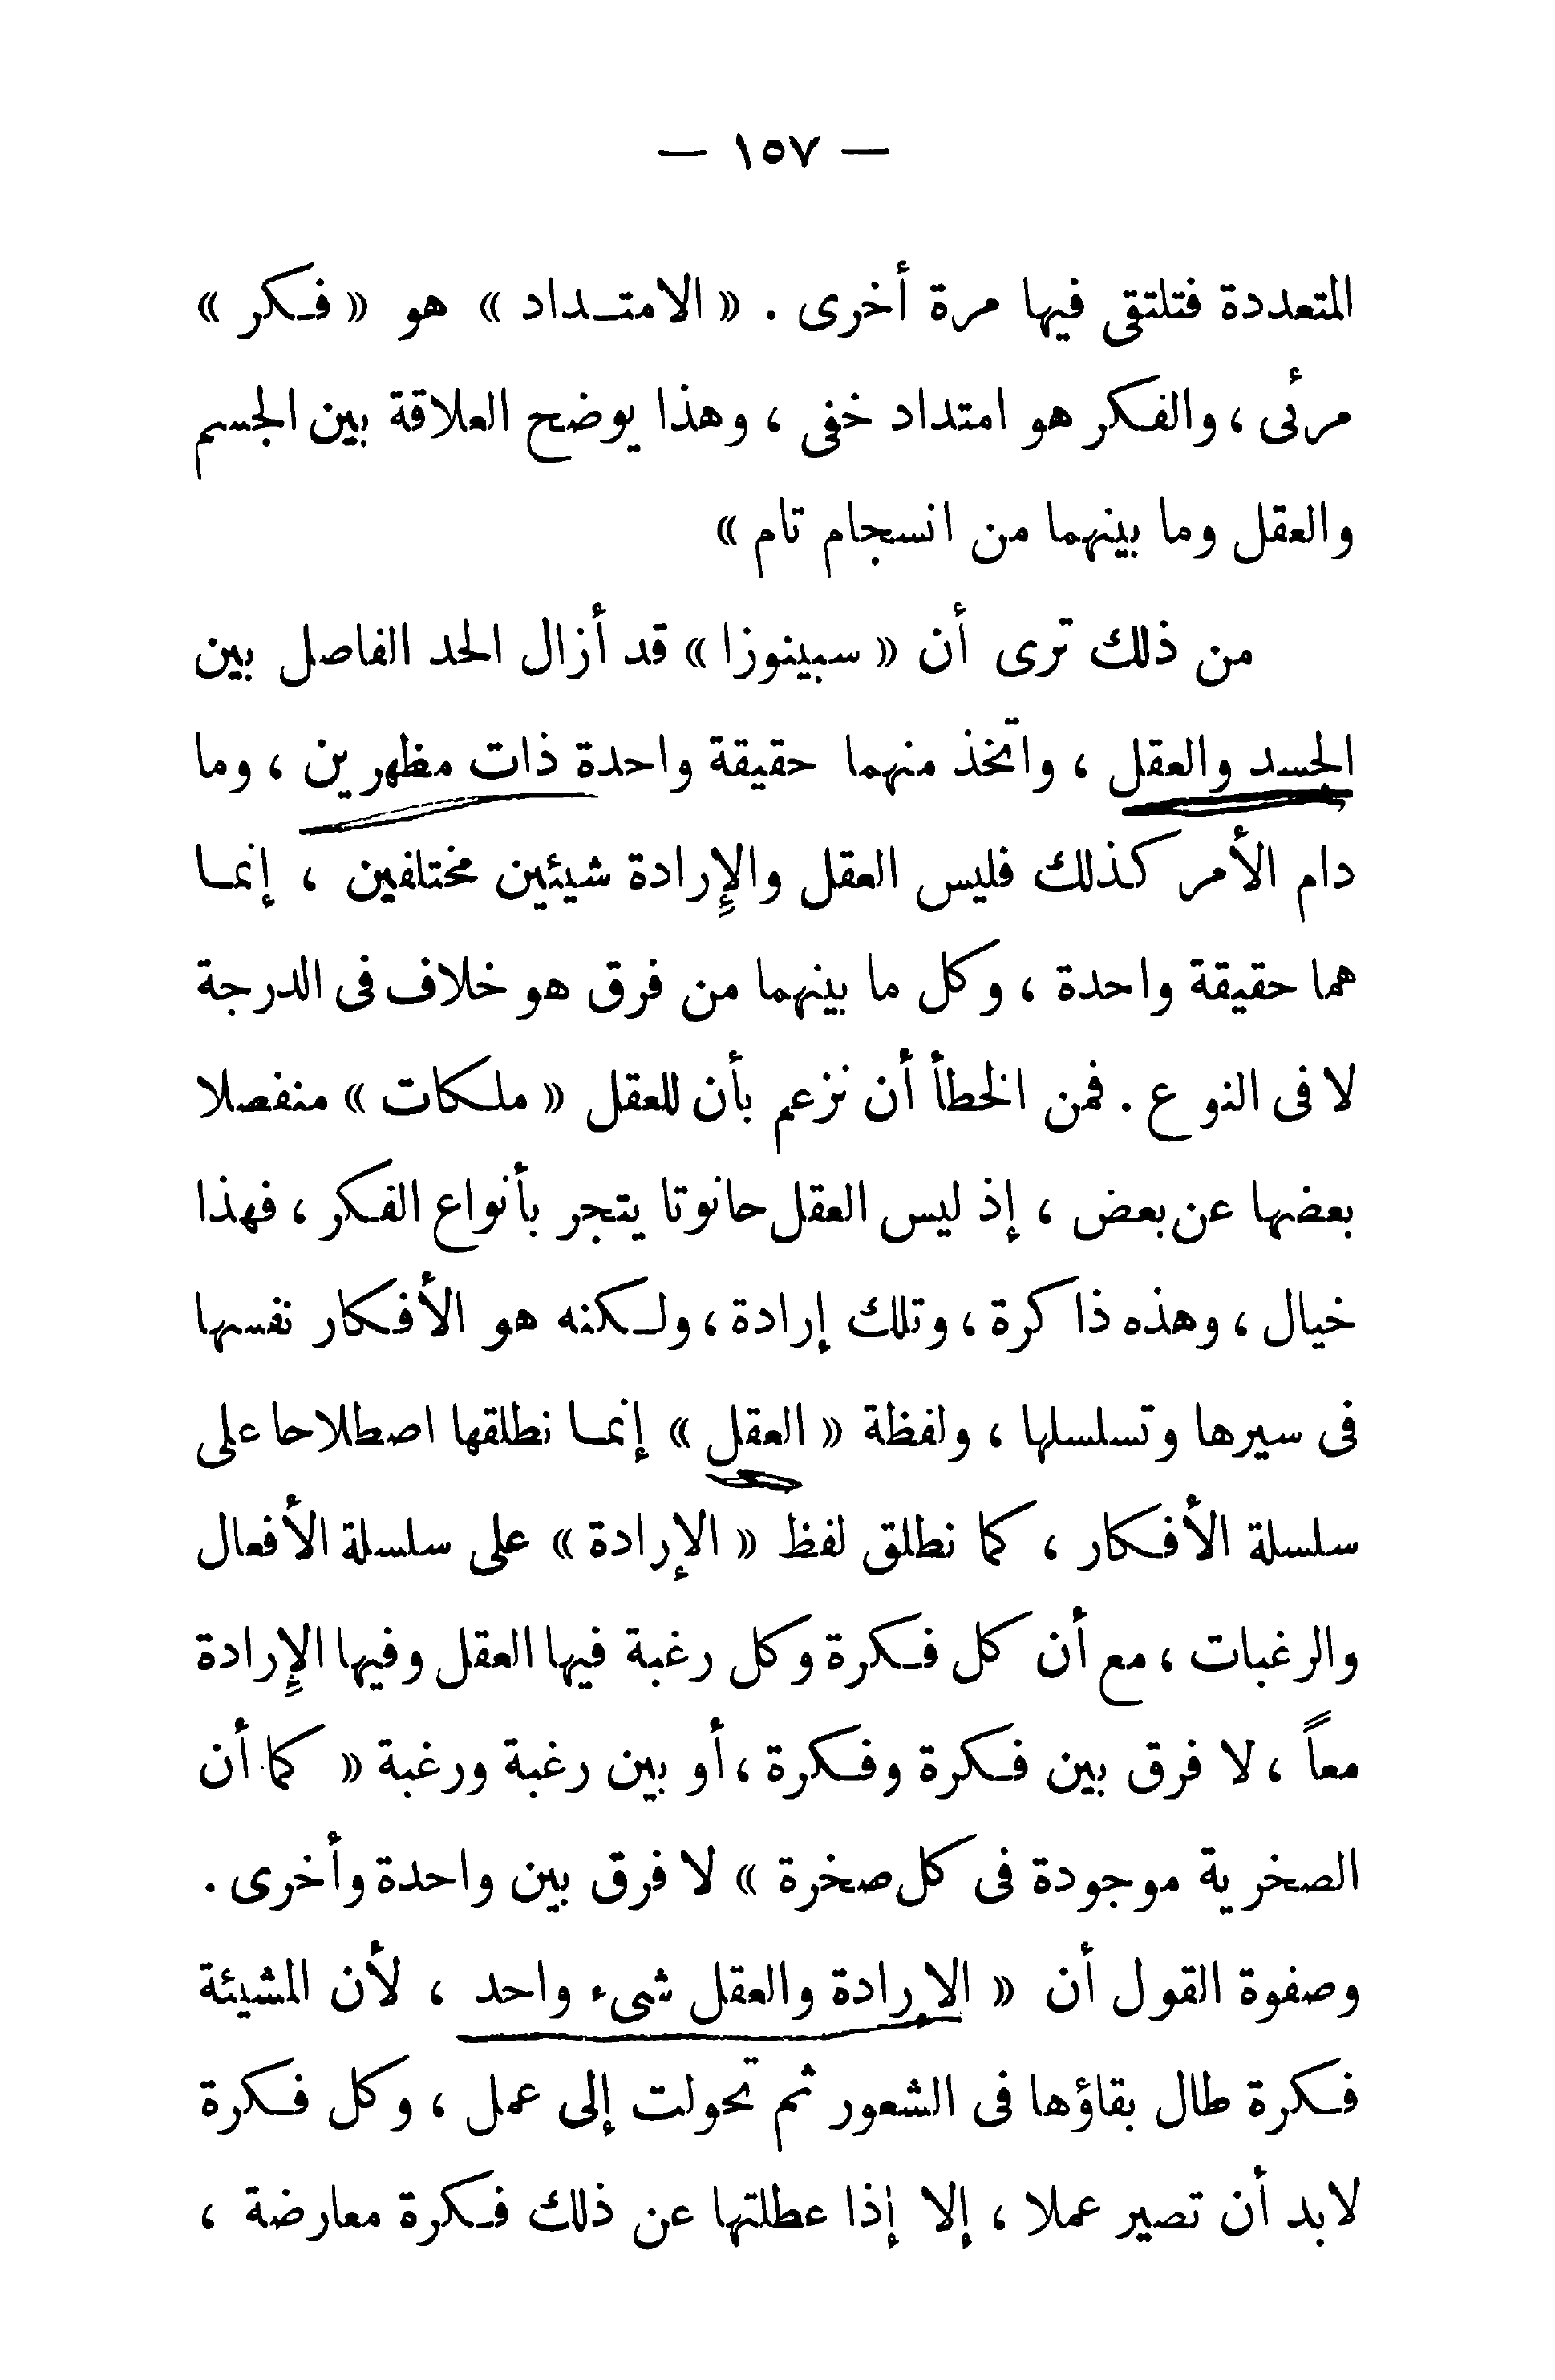 — ١٥٧ —
المتعددة فتلتقى فيها مرة أخرى . « الامتـداد » هو « فـكر »
مرئى ، والفـكر هو امتداد خفى ، وهذا يوضح العلاقة بين الجسم
والعقل وما بينهما من انسجام تام »
من ذلك ترى أن « سبينوزا » قد أزال الحد الفاصل بين
الجسد والعقل ، واتخذ منهما حقيقة واحدة ذات مظهرين ، وما
دام الأمر كذلك فليس العقل والإرادة شيئين مختلفين ، إنمـا
هما حقيقة واحدة ، وكل ما بينهما من فرق هو خلاف فى الدرجة
لا فى النوع . فمن الخطأ أن نزعم بأن للعقل « ملـكات » منفصلا
بعضها عن بعض ، إذ ليس العقل حانوتا يتجر بأنواع الفـكر ، فهذا
خيال ، وهذه ذاكرة ، وتلك إرادة ، ولـكنه هو الأفـكار نفسها
فى سيرها وتسلسلها ، ولفظة « العقل » إنمـا نطلقها اصطلاحا على
سلسلة الأفـكار ، كما نطلق لفظ « الإرادة » على سلسلة الأفعال
والرغبات ، مع أن كل فـكرة وكل رغبة فيها العقل وفيها الإرادة
معاً ، لا فرق بين فـكرة وفـكرة ، أو بين رغبة ورغبة « كما أن
الصخرية موجودة فى كل صخرة » لا فرق بين واحدة وأخرى .
وصفوة القول أن « الإرادة والعقل شىء واحد ، لأن المشيئة
فـكرة طال بقاؤها فى الشعور ثم تحولت إلى عمل ، وكل فـكرة
لابد أن تصير عملا ، إلا إذا عطلتها عن ذلك فـكرة معارضة ،